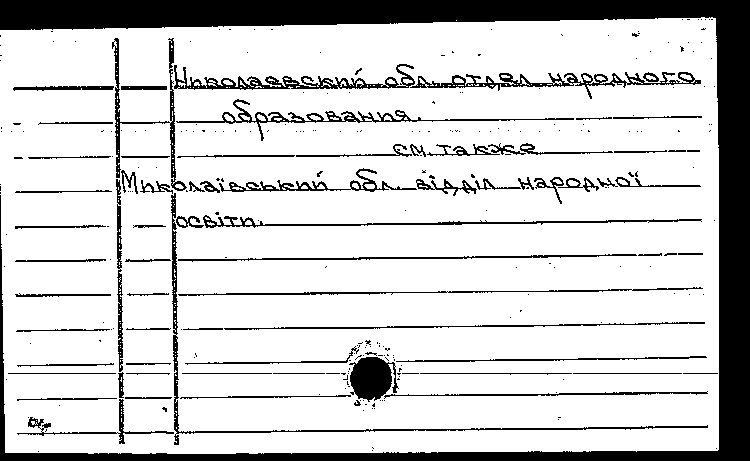 Николаевский обл. отдел народного
образования.
см. также
Миколаївський обл. відділ народної
освіти.